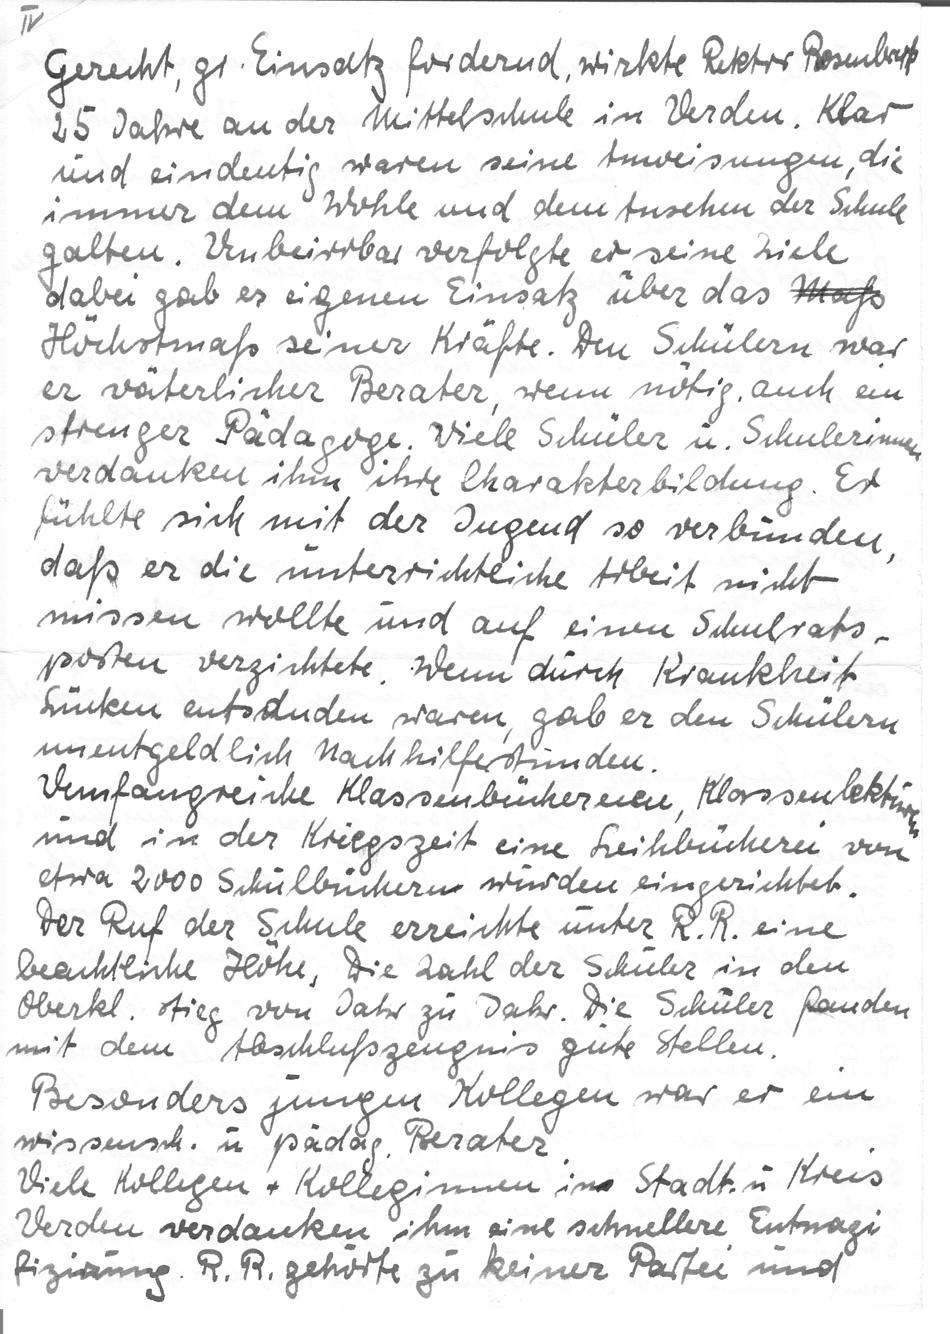 IV
Gerecht, gr. Einsatz fordernd, wirkte Rektor
25 Jahre an der Mittelschule in Verden. Klar
und eindeutig waren seine Anweisungen, die
immer dem Wohle und dem Ansehen der Schule
galten. Unbeirrbar verfolgte er seine Ziele
dabei gab er eigenen Einsatz über das Maß
Höchstmaß seiner Kräfte. Den Schülern war
er väterlicher Berater, wenn nötig, auch ein
strenger Pädagoge. Viele Schüler u. Schülerinnen
verdanken ihm ihre Charakterbildung. Er
fühlte sich mit der Jugend so verbunden,
daß er die unterrichtliche Arbeit nicht
missen wollte und auf einen Schulrats-
posten verzichtete. Wenn durch Krankheit
Lücken entstanden waren, gab er den Schülern
unentgeldlich Nachhilfestunden.
Umfangreiche Klassenbüchereien, Klassenlektüren
und in der Kriegszeit eine Leihbücherei von
etwa 2000 Schulbüchern wurden eingerichtet.
Der Ruf der Schule erreichte unter R.R. eine
beachtliche Höhe, Die Zahl der Schüler in den
Oberkl. stieg von Jahr zu Jahr. Die Schüler fanden
mit dem Abschlußzeugnis gute Stellen.
Besonders jungen Kollegen war er ein
wissensch. u pädag. Berater.
Viele Kollegen + Kolleginnen in Stadt u Kreis
Verden verdanken ihm eine schnellere Entnazi
fizierung. R.R. gehörte zu keiner Partei und